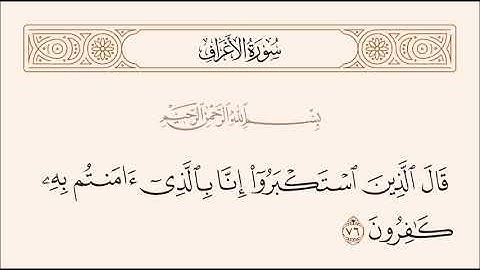 سُورَةُ الأَعۡرَافِ
بِسۡمِ ٱللَّهِ ٱلرَّحۡمَٰنِ ٱلرَّحِيمِ
قَالَ ٱلَّذِينَ ٱسۡتَكۡبَرُوٓاْ إِنَّا بِٱلَّذِيٓ ءَامَنتُم بِهِۦ
كَٰفِرُونَ ٧٦